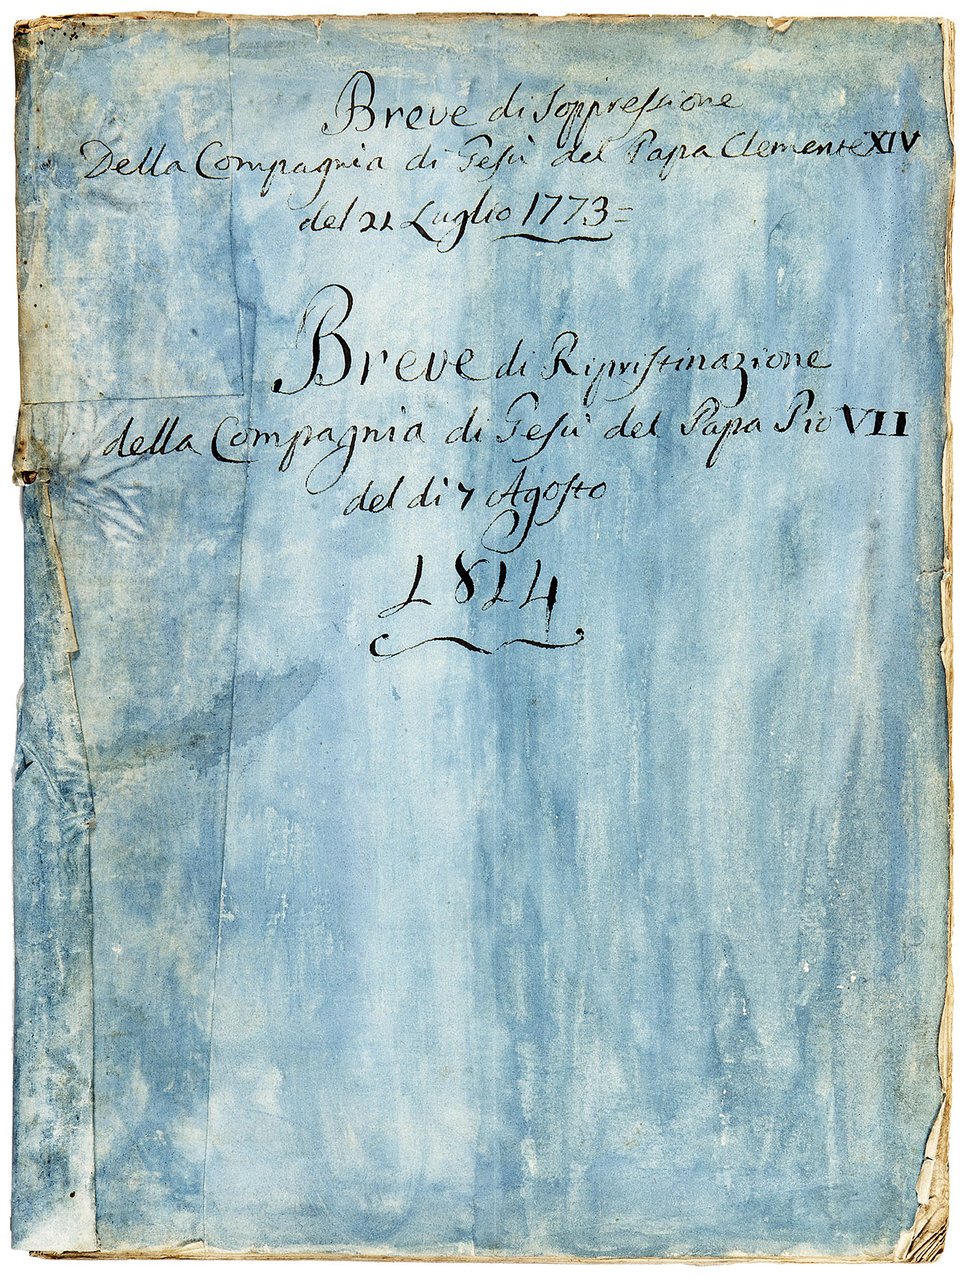 Breve di Soppressione
Della Compagnia di Gesù del Papa Clemente XIV
del 21 Luglio 1773=
Breve di Ripristinazione
della Compagnia di Gesù del Papa Pio VII
del di 7 Agosto
1814